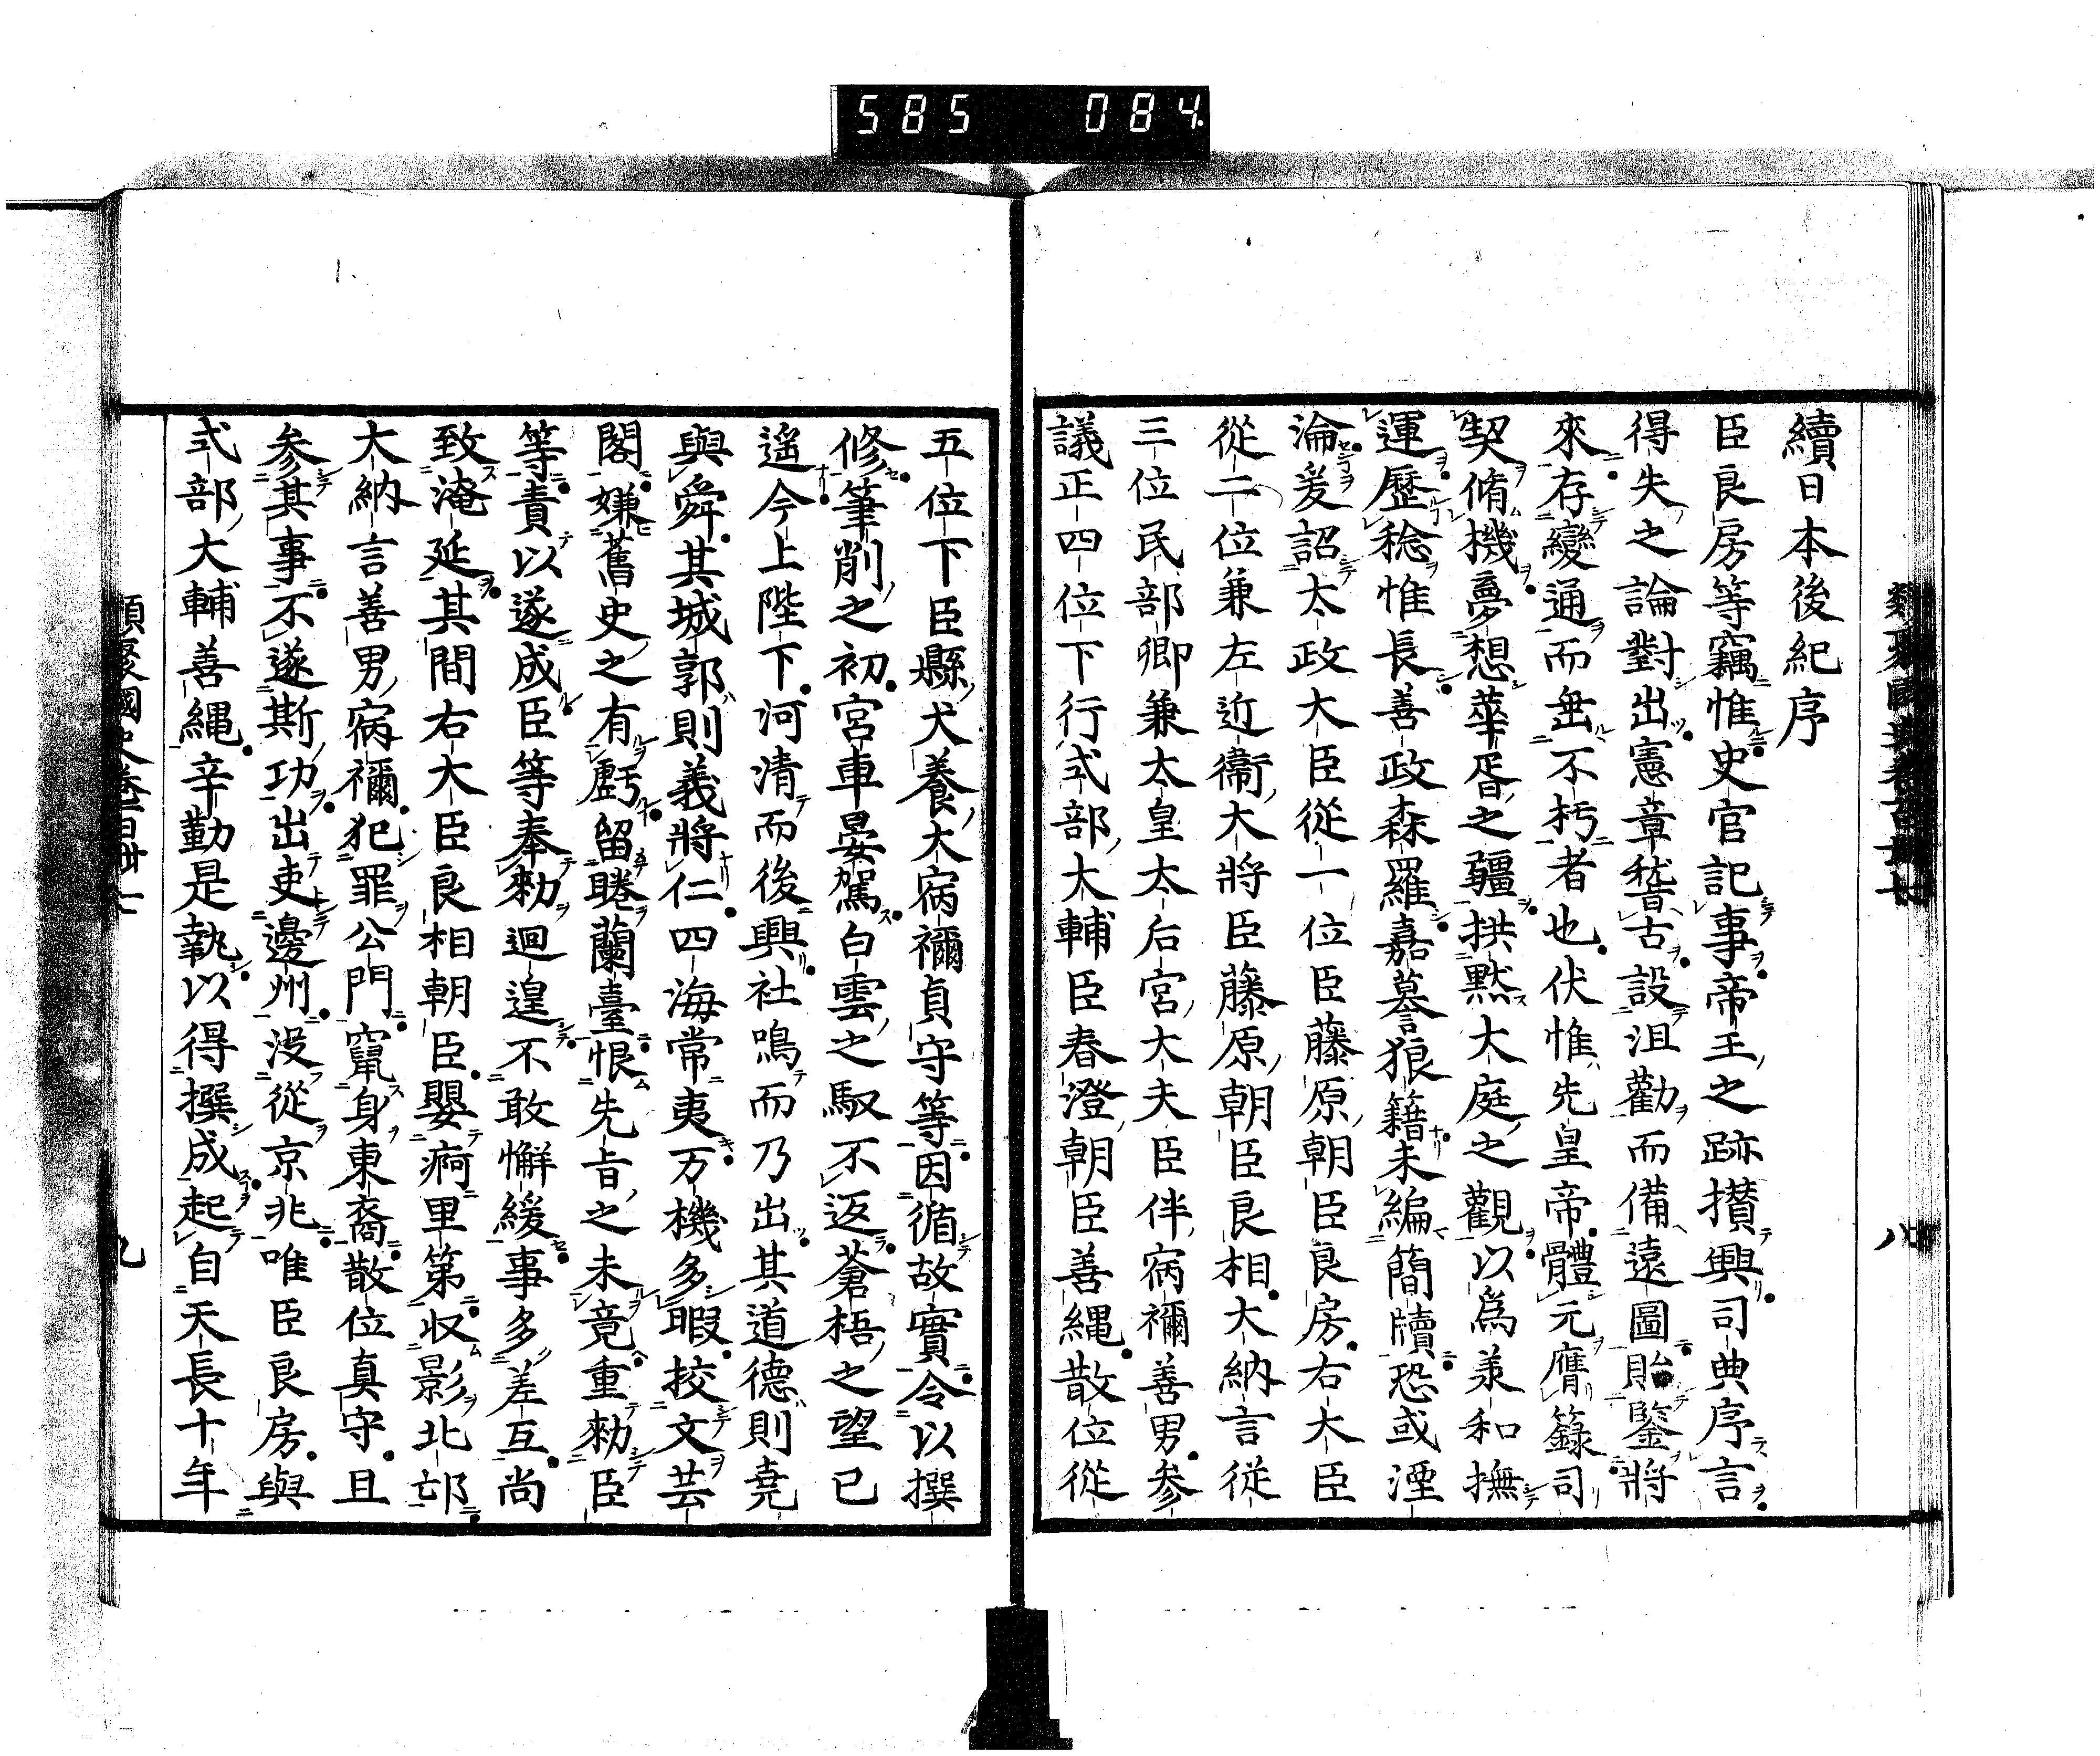 585 084
續日本後紀序
臣良房等竊惟史官記事帝王之跡攅興司典序言
得失之論對出憲章稽古設沮勸而備遠圖貽鑒將
來存變通而無不朽者也伏惟先皇帝體元膺籙司
契脩機夢想華胥之疆拱默大庭之觀以爲羕和撫
運歷稔惟長善政森羅嘉謩狼籍未編簡牘恐或湮
淪爰詔太政大臣從一位臣藤原朝臣良房右大臣
從二位兼左近衞大將臣藤原朝臣良相大納言從
三位民部卿兼太皇太后宮大夫臣伴宿禰善男参
議正四位下行式部大輔臣春澄朝臣善縄散位從
五位下臣縣犬養大宿禰貞守等因循故實令以撰
修筆削之初宮車晏駕白雲之馭不返蒼梧之望已
遥今上陛下河清而後興社鳴而乃出其道德則堯
與舜其城郭則義將仁四海常夷万機多暇挍文芸
閣嫌舊史之有虧留睠蘭臺恨先旨之未竟重勑臣
等責以遂成臣等奉勑迴遑不敢懈緩事多差互尚
致淹延其間右大臣良相朝臣嬰痾里第収影北邙
大納言善男宿禰犯罪公門竄身東裔散位真守且
参其事不遂斯功出吏邊州没從京兆唯臣良房與
式部大輔善縄辛勤是執以得撰成起自天長十年